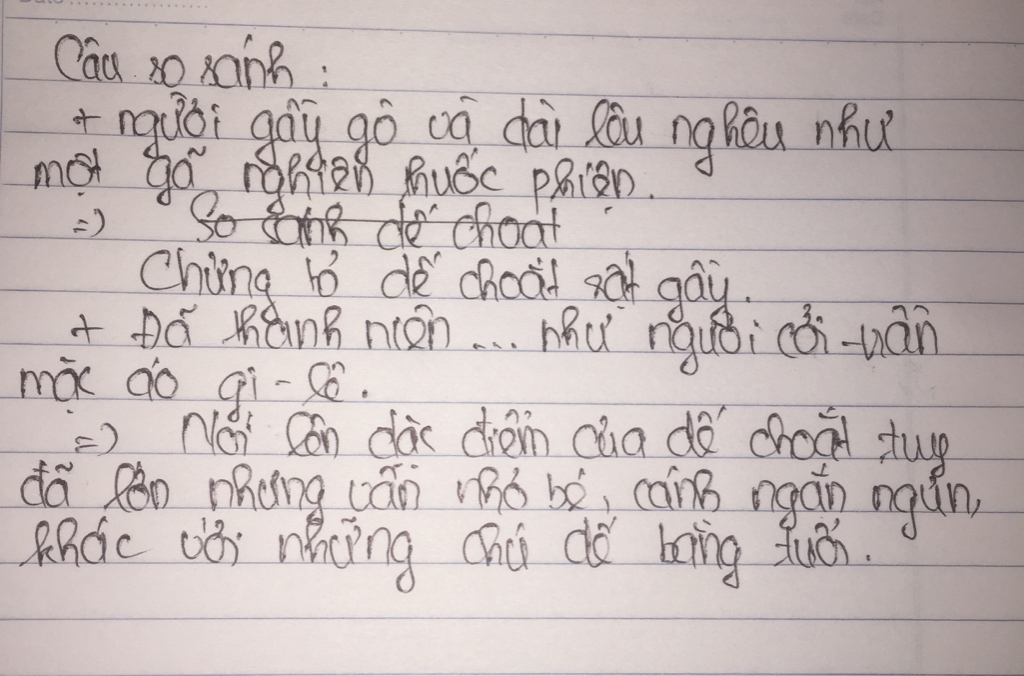 Câu so sánh :
+ người gầy gò và dài lêu nghêu như
một gã nghiện thuốc phiện.
=> So sánh dế choắt
Chứng tỏ dế choắt rất gầy.
+ Đã thanh niên ... như người cởi trần
mặc áo gi - lê.
=> Nói lên đặc điểm của dế choắt tuy
đã lớn nhưng vẫn nhỏ bé, cánh ngắn ngủn,
khác với những chú dế bằng tuổi.